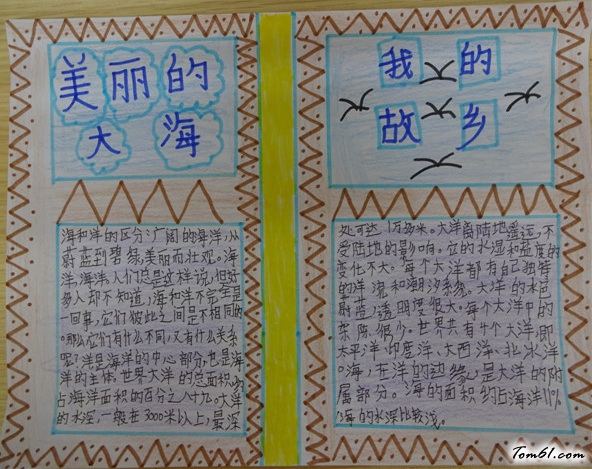 美丽的
大海
海和洋的区分:广阔的海洋,从
蔚蓝到碧绿,美丽而壮观。海
洋,海洋,人们总是这样说,但好
多人却不知道,海和洋不完全是
一回事,它们彼此之间是不相同的
。那么它们有什么不同,又有什么关系
呢?洋是海洋的中心部分,也是海
洋的主体。世界大洋的总面积,约
占海洋面积的百分之八十九。大洋
的水深,一般在3000米以上,最深
我的
故乡
处可达1万多米。大洋离陆地遥远,不
受陆地的影响。它的水温和盐度的
变化不大。每个大洋都有自己独特
的洋流和潮汐系统。大洋的水色
蔚蓝,透明度很大。每个大洋中的
杂质很少。世界共有4个大洋,即
太平洋、印度洋、大西洋、北冰洋
。海,在洋的边缘,是大洋的附
属部分。海的面积约占海洋11%
海的水深比较浅。
Tom61.com